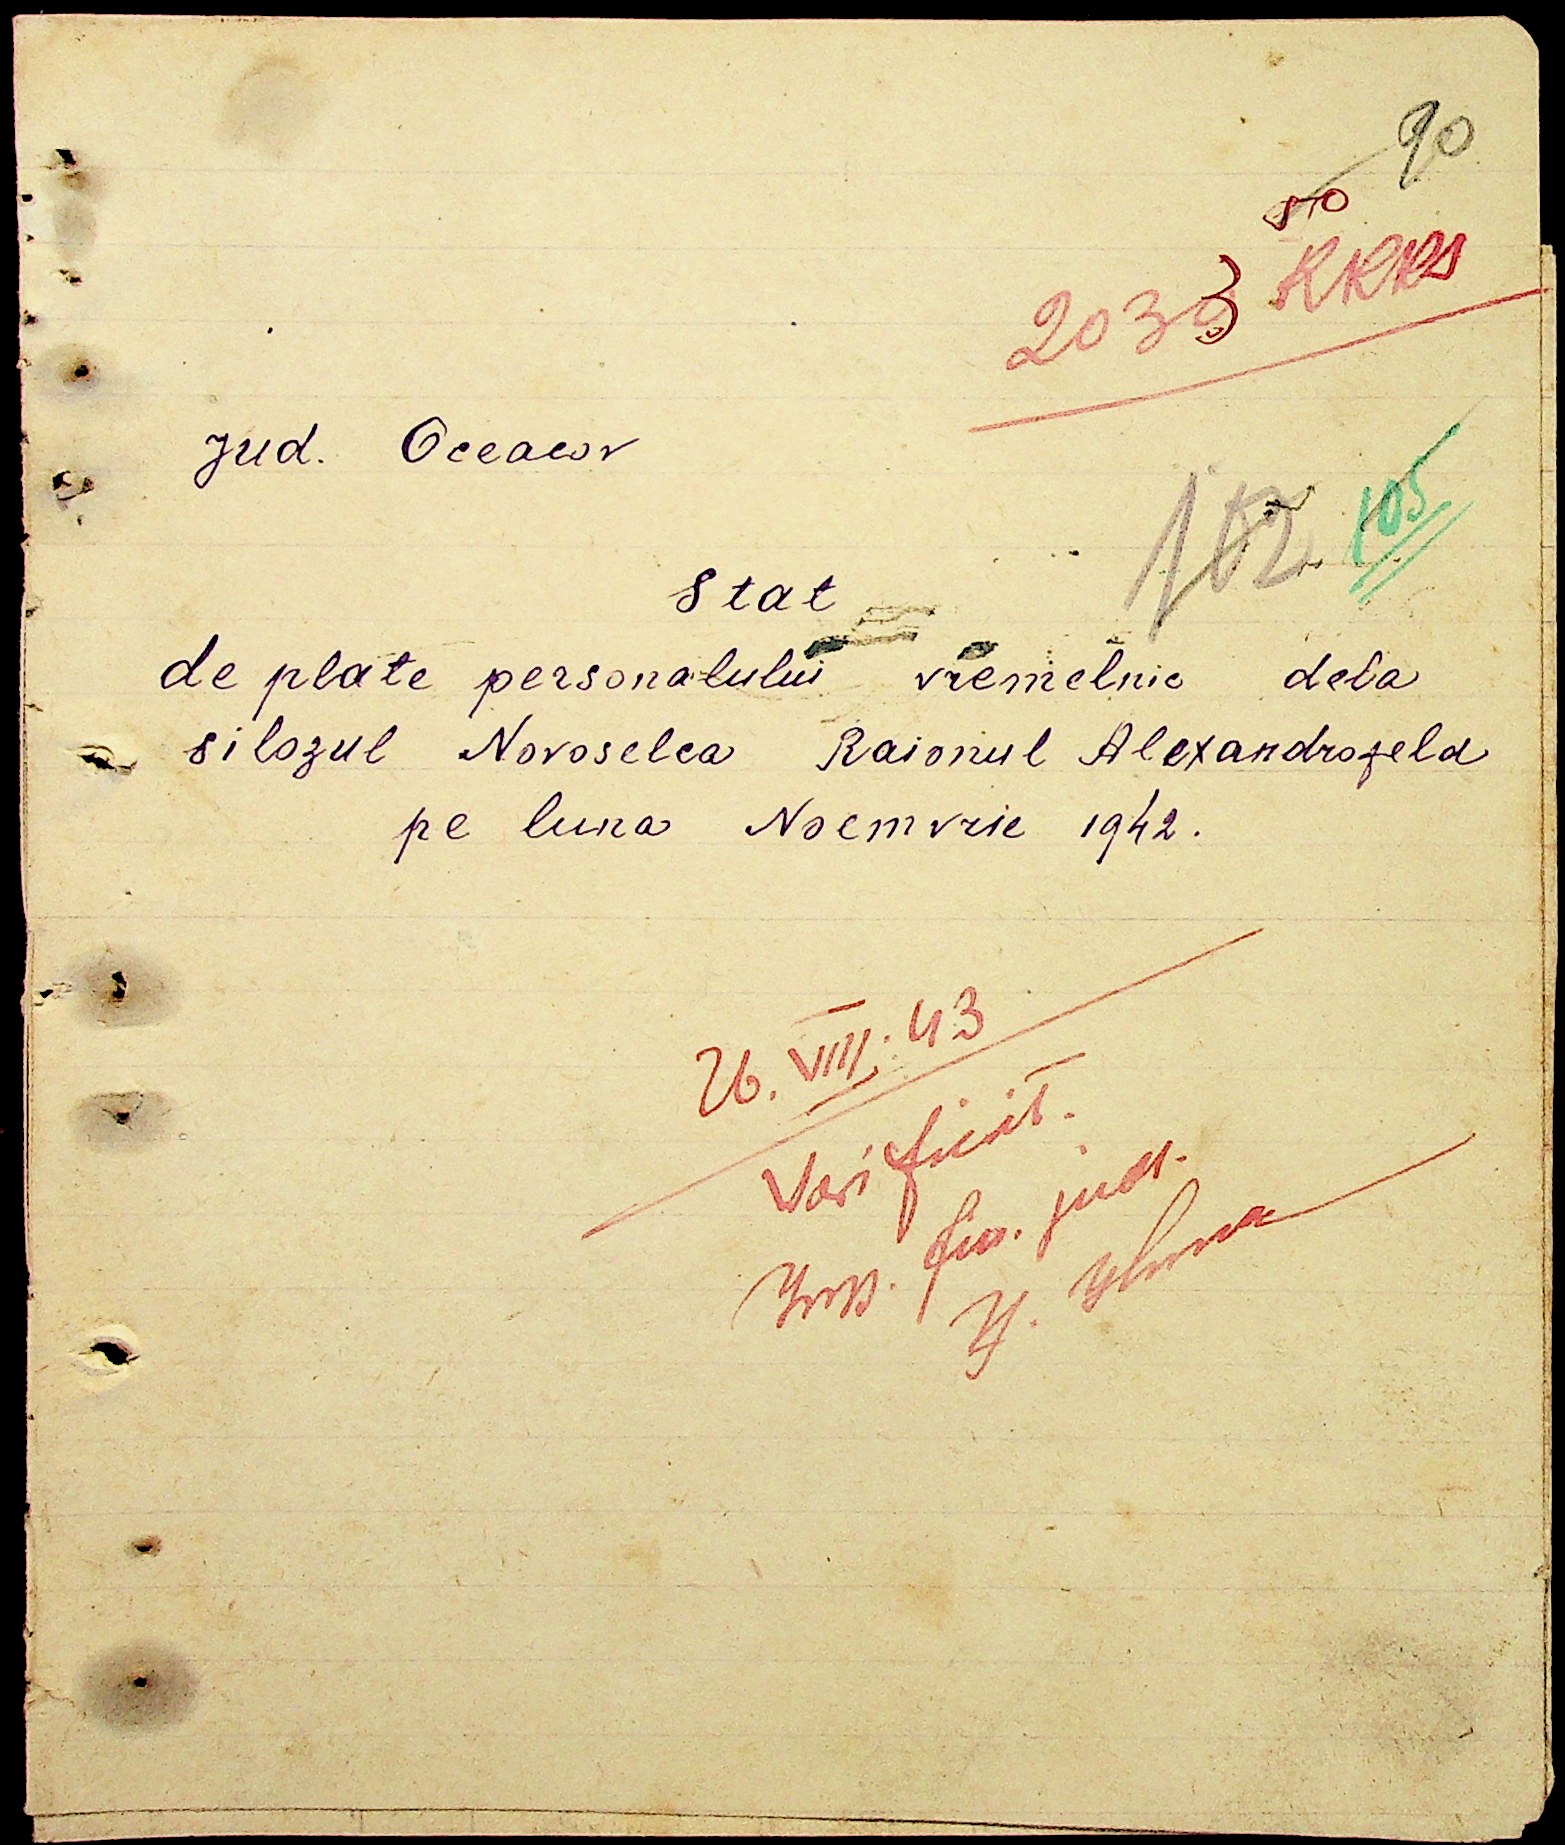 90
2033 RKKS
Jud. Oceacov
102 105
Stat
de plate personalului vremelnic dela
silozul Novoselca Raionul Alexandrofeld
pe luna Noemvrie 1942.
26. VIII. 43
Verificat.
Insp. fin. jud.